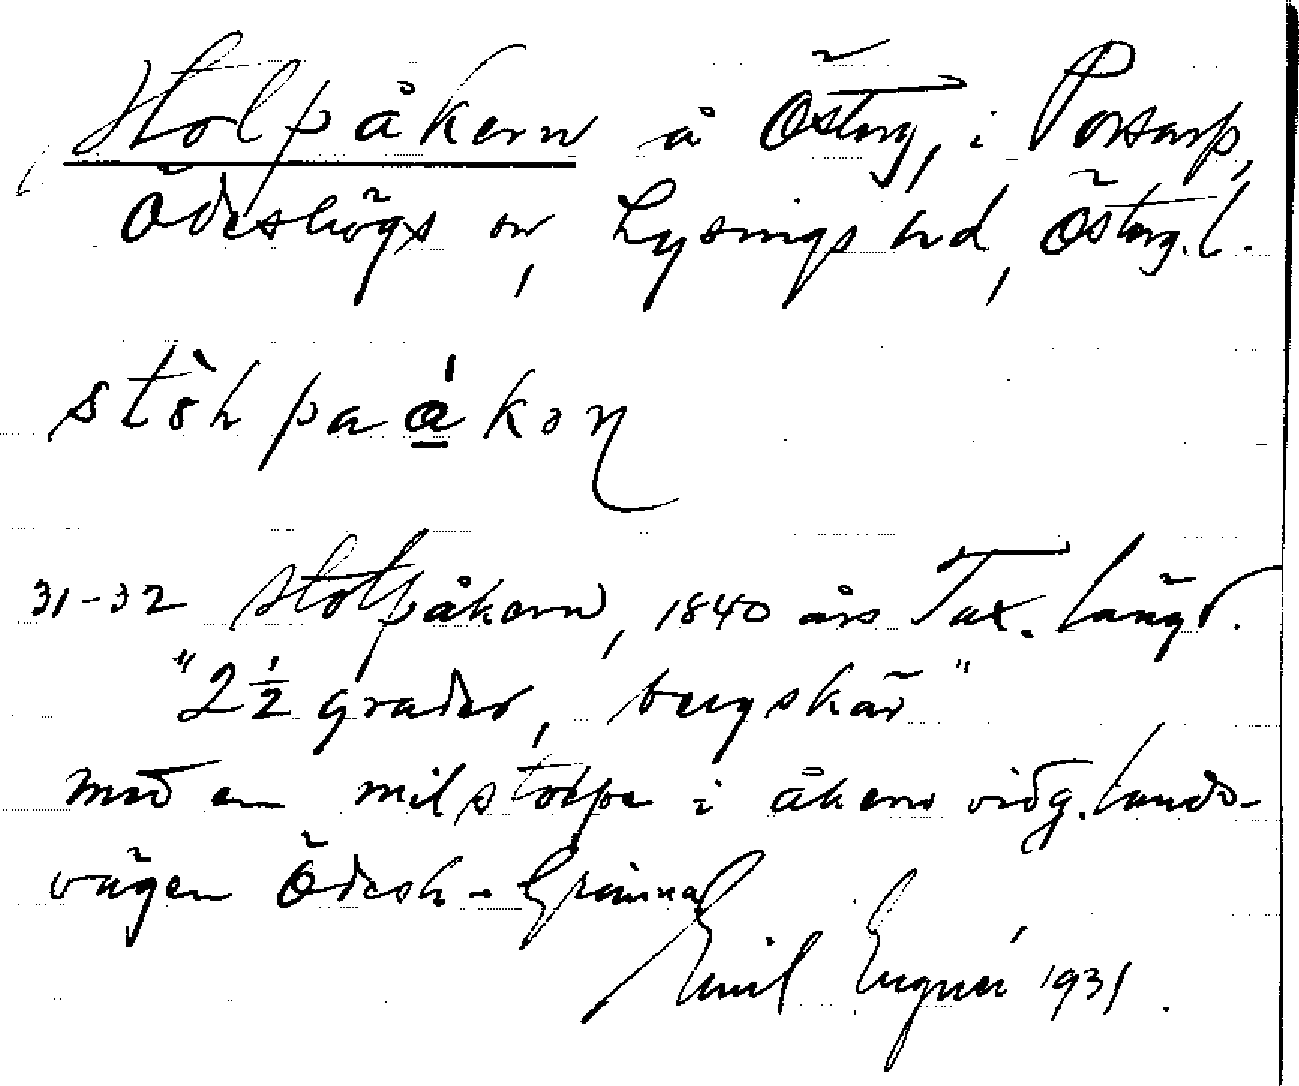 Stolpåkern å Österg, i Porsarp,
Ödeshögs sn, Lysings hd, Österg. l.
stòh pa ákon
31-32 Stolpåkern, 1840 års Tax. längd.
"2 1/2 grader, bergskär"
med en milstolpe i åkern vid g. lands-
vägen Ödesh - Gränna
Emil Engné 1931.